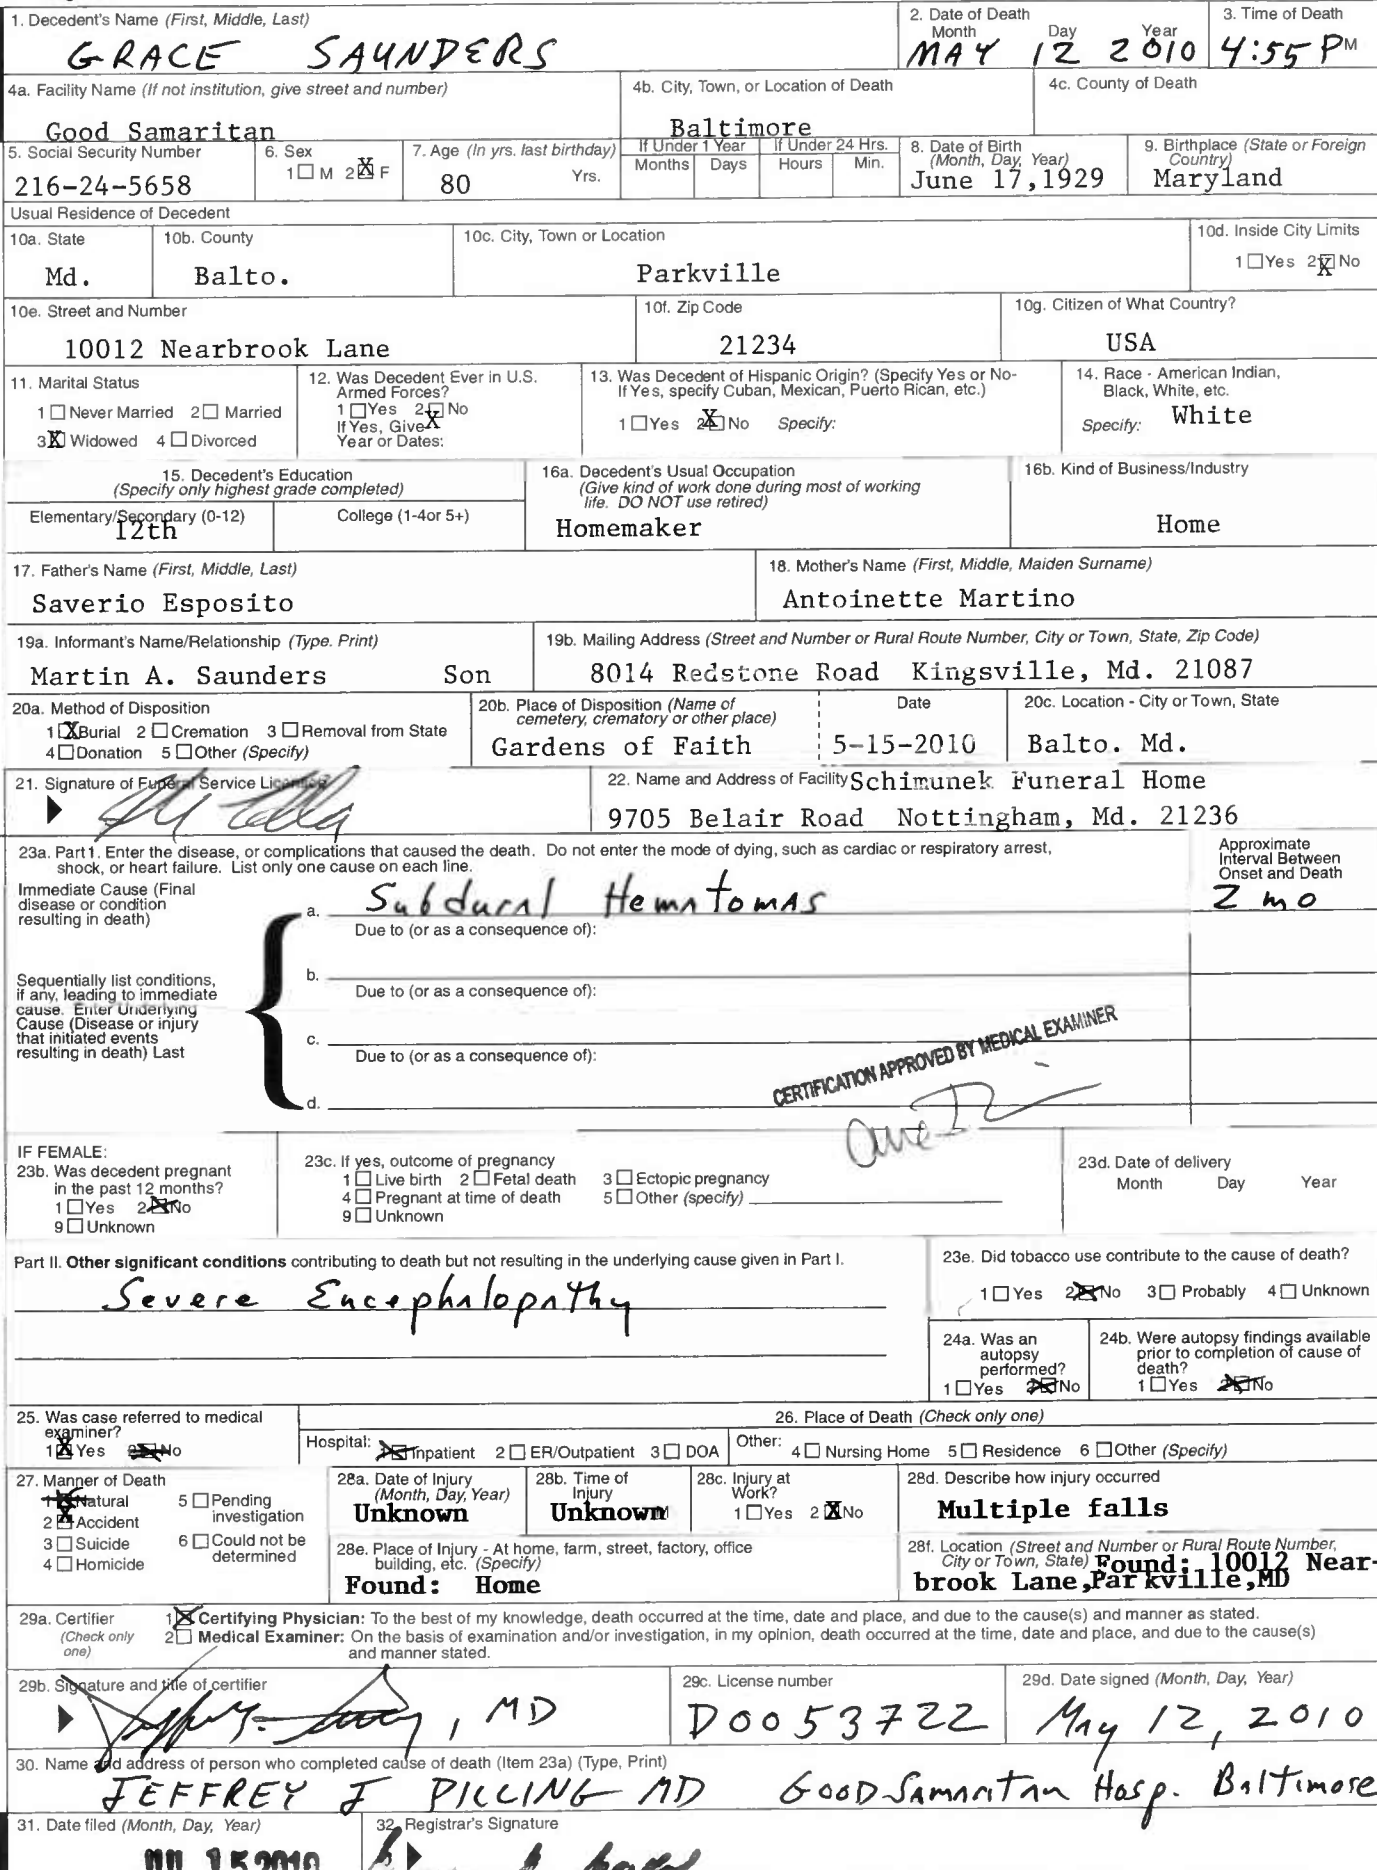 1. Decedent's Name (First, Middle, Last)
GRACE SAUNDERS
2. Date of Death
Month Day Year
MAY 12 2010
3. Time of Death
4:55 PM
4a. Facility Name (If not institution, give street and number)
Good Samaritan
4b. City, Town, or Location of Death
Baltimore
4c. County of Death
5. Social Security Number
216-24-5658
6. Sex
1 ☐ M 2 ☒ F
7. Age (In yrs. last birthday)
80 Yrs.
If Under 1 Year
Months Days
If Under 24 Hrs.
Hours Min.
8. Date of Birth
(Month, Day, Year)
June 17,1929
9. Birthplace (State or Foreign
Country)
Maryland
Usual Residence of Decedent
10a. State
Md.
10b. County
Balto.
10c. City, Town or Location
Parkville
10d. Inside City Limits
1 ☐ Yes 2 ☒ No
10e. Street and Number
10012 Nearbrook Lane
10f. Zip Code
21234
10g. Citizen of What Country?
USA
11. Marital Status
1 ☐ Never Married 2 ☐ Married
3 ☒ Widowed 4 ☐ Divorced
12. Was Decedent Ever in U.S.
Armed Forces?
1 ☐ Yes 2 ☒ No
If Yes, Give
Year or Dates:
13. Was Decedent of Hispanic Origin? (Specify Yes or No-
If Yes, specify Cuban, Mexican, Puerto Rican, etc.)
1 ☐ Yes 2 ☒ No Specify:
14. Race - American Indian,
Black, White, etc.
Specify: White
15. Decedent's Education
(Specify only highest grade completed)
Elementary/Secondary (0-12)
12th
College (1-4or 5+)
16a. Decedent's Usual Occupation
(Give kind of work done during most of working
life. DO NOT use retired)
Homemaker
16b. Kind of Business/Industry
Home
17. Father's Name (First, Middle, Last)
Saverio Esposito
18. Mother's Name (First, Middle, Maiden Surname)
Antoinette Martino
19a. Informant's Name/Relationship (Type. Print)
Martin A. Saunders Son
19b. Mailing Address (Street and Number or Rural Route Number, City or Town, State, Zip Code)
8014 Redstone Road Kingsville, Md. 21087
20a. Method of Disposition
1 ☒ Burial 2 ☐ Cremation 3 ☐ Removal from State
4 ☐ Donation 5 ☐ Other (Specify)
20b. Place of Disposition (Name of
cemetery, crematory or other place)
Gardens of Faith
Date
5-15-2010
20c. Location - City or Town, State
Balto. Md.
21. Signature of Funeral Service Licensee
22. Name and Address of Facility Schimunek Funeral Home
9705 Belair Road Nottingham, Md. 21236
23a. Part1. Enter the disease, or complications that caused the death. Do not enter the mode of dying, such as cardiac or respiratory arrest,
shock, or heart failure. List only one cause on each line.
Approximate
Interval Between
Onset and Death
Immediate Cause (Final
disease or condition
resulting in death)
a. Subdural Hematomas
2 mo
Due to (or as a consequence of):
Sequentially list conditions,
if any, leading to immediate
cause. Enter Underlying
Cause (Disease or injury
that initiated events
resulting in death) Last
b.
Due to (or as a consequence of):
c.
Due to (or as a consequence of):
d.
CERTIFICATION APPROVED BY MEDICAL EXAMINER
IF FEMALE:
23b. Was decedent pregnant
in the past 12 months?
1 ☐ Yes 2 ☒ No
9 ☐ Unknown
23c. If yes, outcome of pregnancy
1 ☐ Live birth 2 ☐ Fetal death 3 ☐ Ectopic pregnancy
4 ☐ Pregnant at time of death 5 ☐ Other (specify)
9 ☐ Unknown
23d. Date of delivery
Month Day Year
Part II. Other significant conditions contributing to death but not resulting in the underlying cause given in Part I.
Severe Encephalopathy
23e. Did tobacco use contribute to the cause of death?
1 ☐ Yes 2 ☒ No 3 ☐ Probably 4 ☐ Unknown
24a. Was an
autopsy
performed?
1 ☐ Yes 2 ☒ No
24b. Were autopsy findings available
prior to completion of cause of
death?
1 ☐ Yes 2 ☒ No
25. Was case referred to medical
examiner?
1 ☒ Yes 2 ☒ No
26. Place of Death (Check only one)
Hospital: 1 ☒ Inpatient 2 ☐ ER/Outpatient 3 ☐ DOA
Other: 4 ☐ Nursing Home 5 ☐ Residence 6 ☐ Other (Specify)
27. Manner of Death
1 ☒ Natural 5 ☐ Pending
investigation
2 ☒ Accident
3 ☐ Suicide 6 ☐ Could not be
determined
4 ☐ Homicide
28a. Date of Injury
(Month, Day, Year)
Unknown
28b. Time of
Injury
Unknown M
28c. Injury at
Work?
1 ☐ Yes 2 ☒ No
28d. Describe how injury occurred
Multiple falls
28e. Place of Injury - At home, farm, street, factory, office
building, etc. (Specify)
Found: Home
28f. Location (Street and Number or Rural Route Number,
City or Town, State) Found: 10012 Near-
brook Lane,Parkville,MD
29a. Certifier
(Check only
one)
1 ☒ Certifying Physician: To the best of my knowledge, death occurred at the time, date and place, and due to the cause(s) and manner as stated.
2 ☐ Medical Examiner: On the basis of examination and/or investigation, in my opinion, death occurred at the time, date and place, and due to the cause(s)
and manner stated.
29b. Signature and title of certifier
, MD
29c. License number
D0053722
29d. Date signed (Month, Day, Year)
May 12, 2010
30. Name and address of person who completed cause of death (Item 23a) (Type, Print)
JEFFREY J PILLING MD GOOD Samaritan Hosp. Baltimore
31. Date filed (Month, Day, Year)
15 2010
32. Registrar's Signature